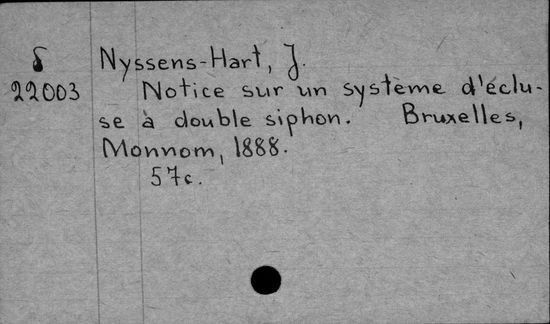 δ
22003
Nyssens-Hart, J.
Notice sur un système d'éclu-
se à double siphon. Bruxelles,
Monnom, 1888.
57c.